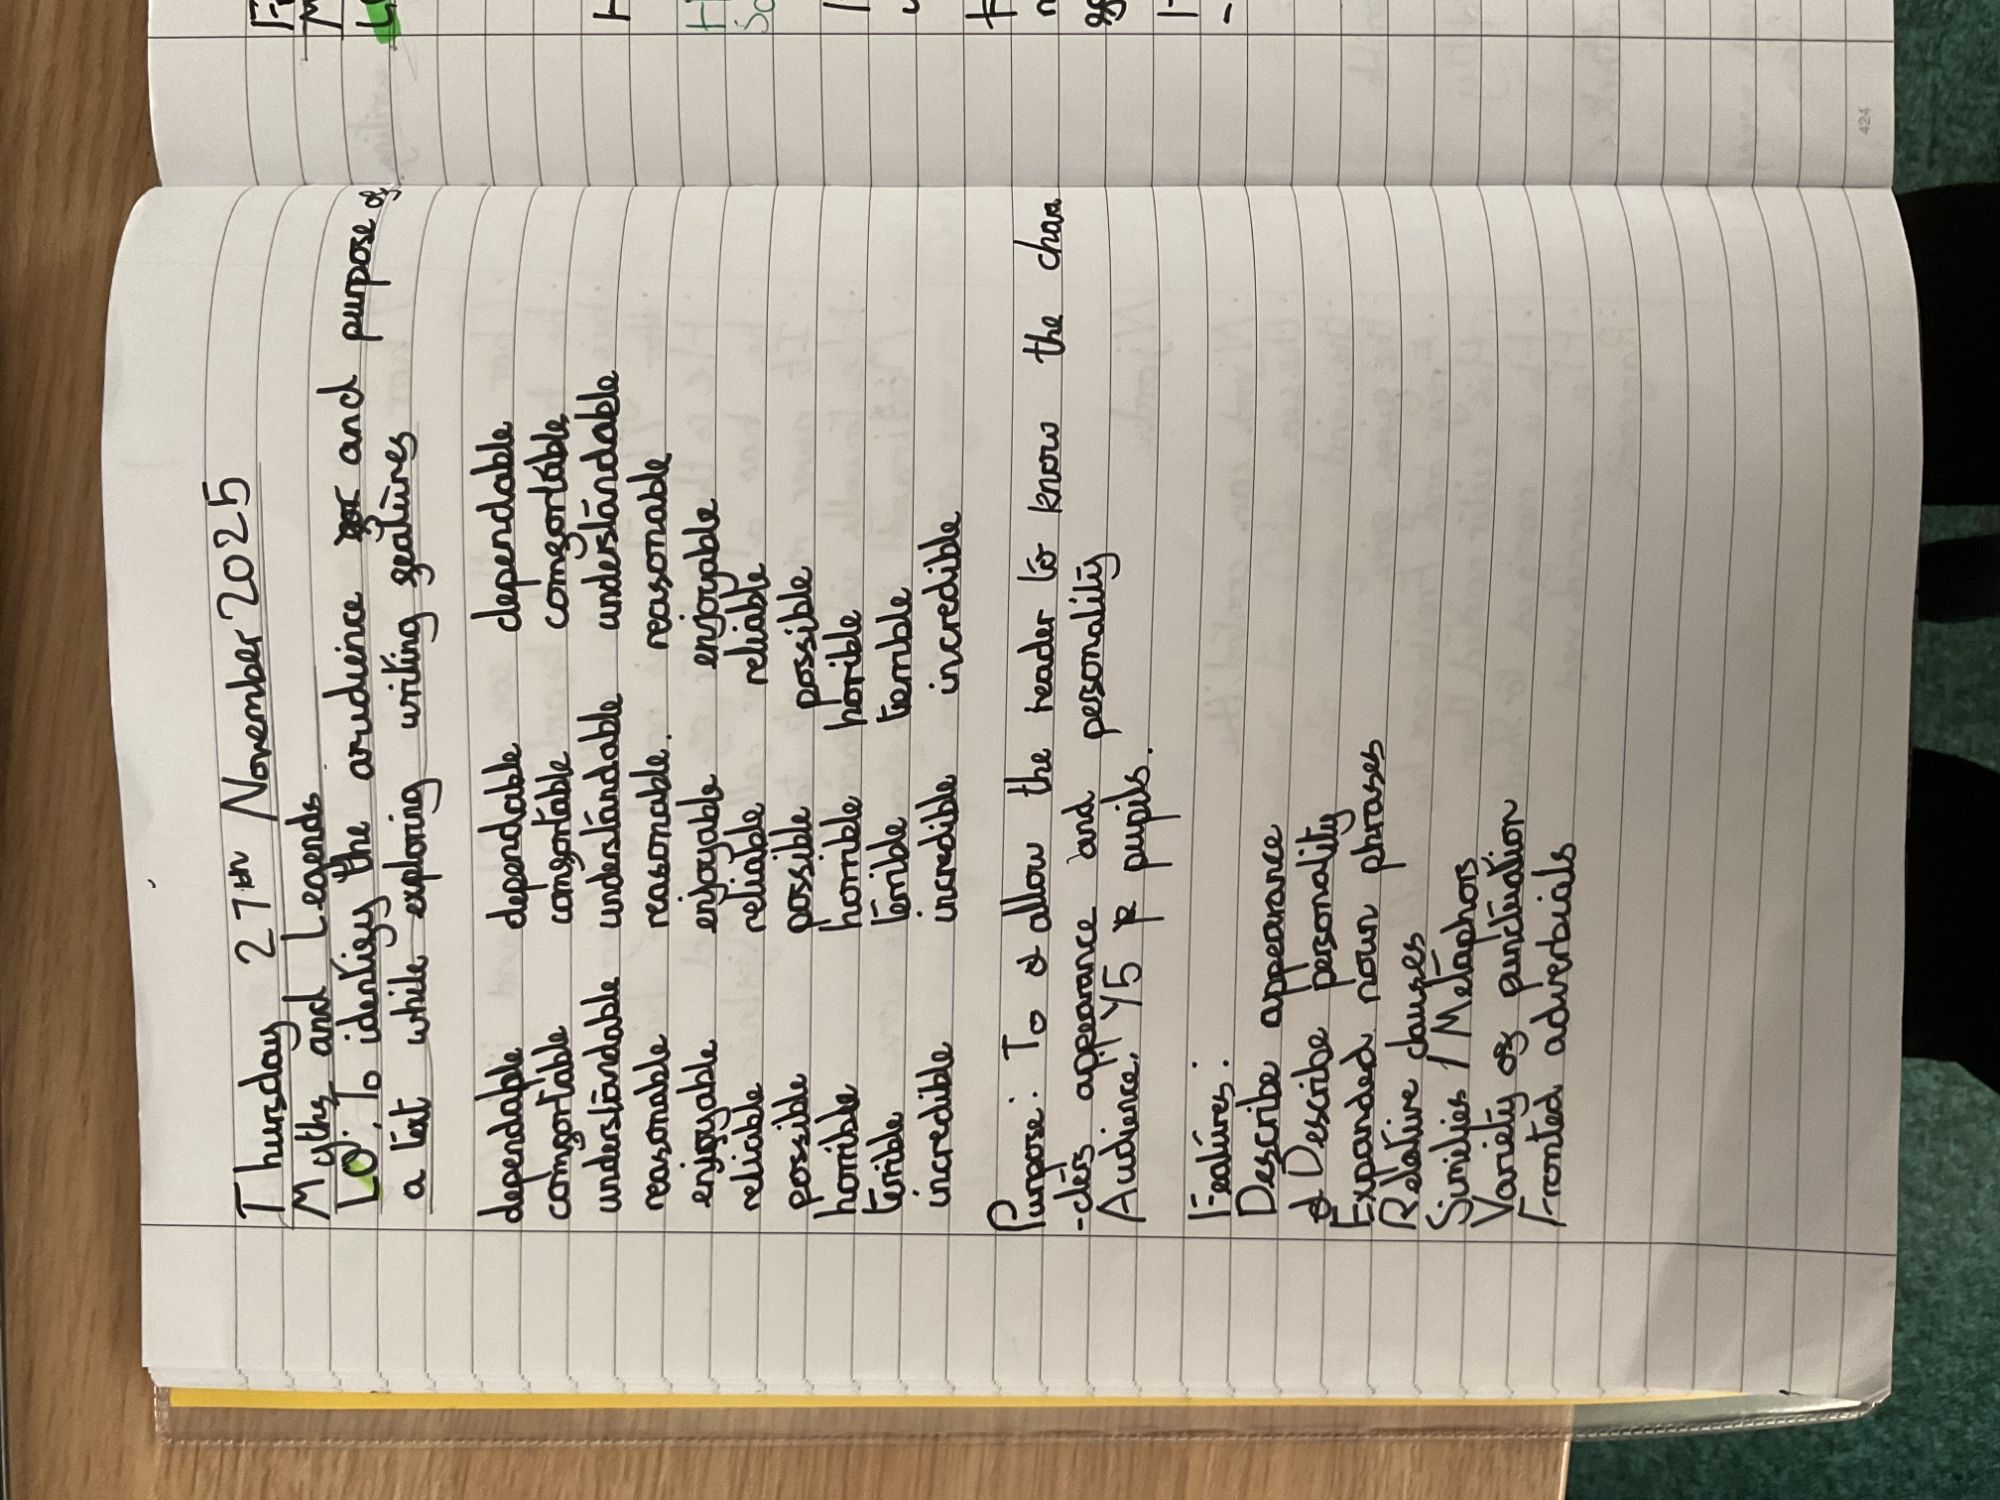 Thursday 27th November 2025
Myths and Legends
LO: To identify the arudience and purpose of
a text while exploring writing features
dependable dependable dependable
comfortable comfortable comfortable
understandable understandable understandable
reasonable reasonable. reasonable
enjoyable enjoyable enjoyable
reliable reliable reliable
possible possible possible
horrible horrible horible
terrible terrible terrible
incredible incredible incredible
Purpose: To allow the reader to know the chara
-cters appearance and personality
Audience: Y5 pupils.
Features:
Describe appearance
Describe personality
Expanded noun phrases
Relative clauses
Similies / Metaphors
Variety of punctuation
Fronted adverbials
424